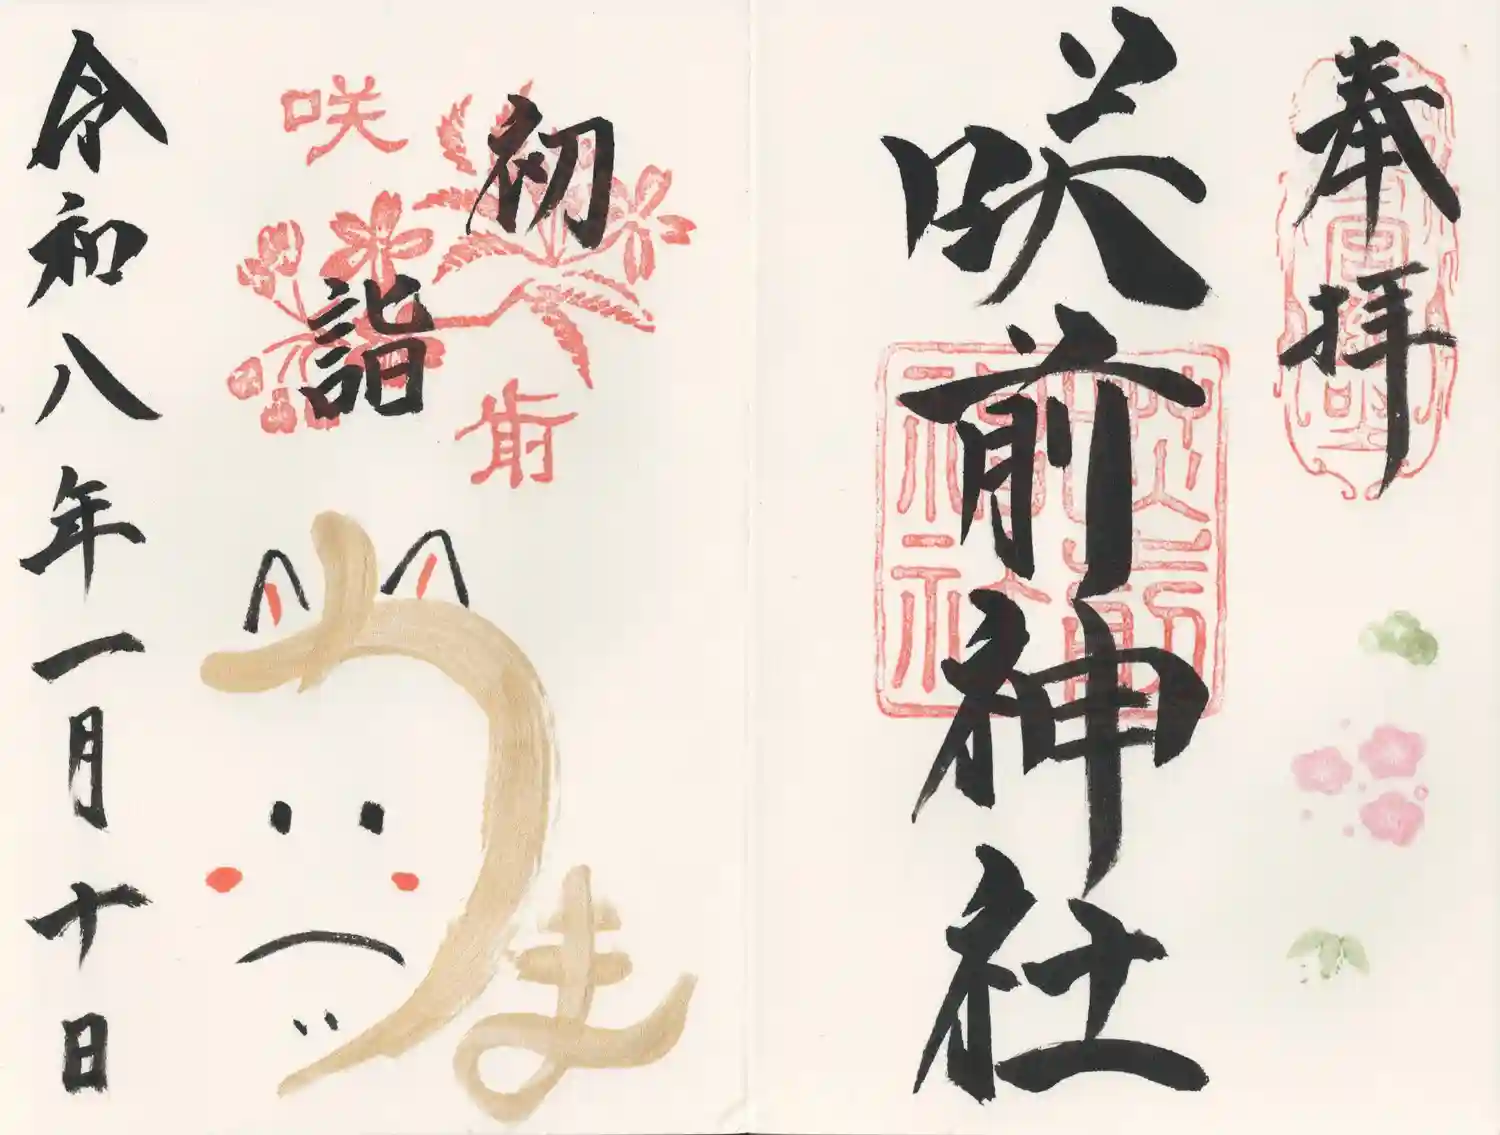 奉拝
咲前神社
咲前神社
初詣
咲前
うま
令和八年一月十日